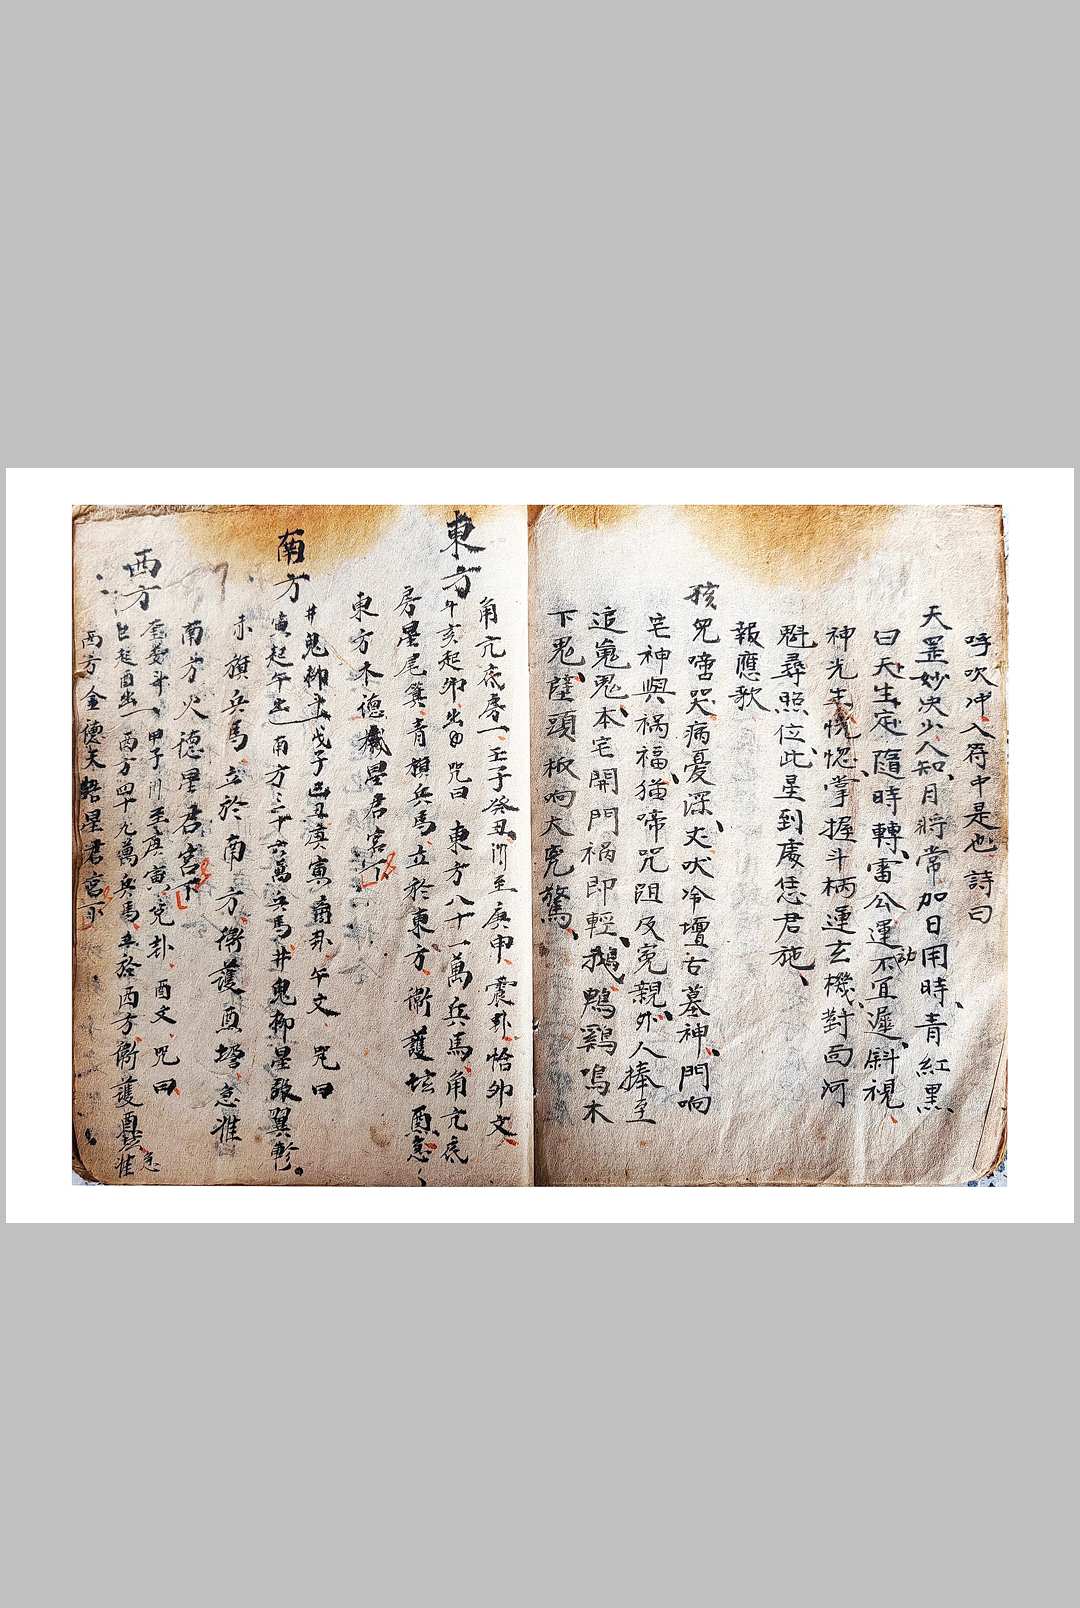 呼吹冲入符中是也、詩曰
天罡妙决少人知、月將常加日用時、青紅黑
曰天生定、隨時轉、雷公運動不宜遲、斜視
神光生恍惚、掌握斗柄運玄機、對面河
魁尋照位、此星到處恁君施、
報應歌
孩兒啼哭病憂深、犬吠冷壇古墓神、門响
宅神與禍福、猫啼咒詛及冤親、外人捧至
追鬼本宅開門禍即輕、鵝鴨鷄鳴木
下鬼、頭板响大冤驚、
東方
角亢底房一、壬子癸丑、至庚申、震卦、恰卯文、
亥起卯、出 咒曰 東方八十一萬兵馬、角亢底
房星尾箕、青旗兵馬、立於東方、衛護坛酉急、
東方木德歲星君宮下
南方
井鬼柳 戊子己丑庚寅 午文、咒曰
寅起午出 南方三十六萬兵馬、井鬼柳星 翼軫。
赤旗兵馬、立於南方、衛護 急准
南方火德星君宮下
西方
奎婁 甲子 至庚寅、兌卦、酉文、咒曰、
巳起酉出一 西方四十九萬兵馬、 於西方衛護 急准
西方金德太 星君宮下